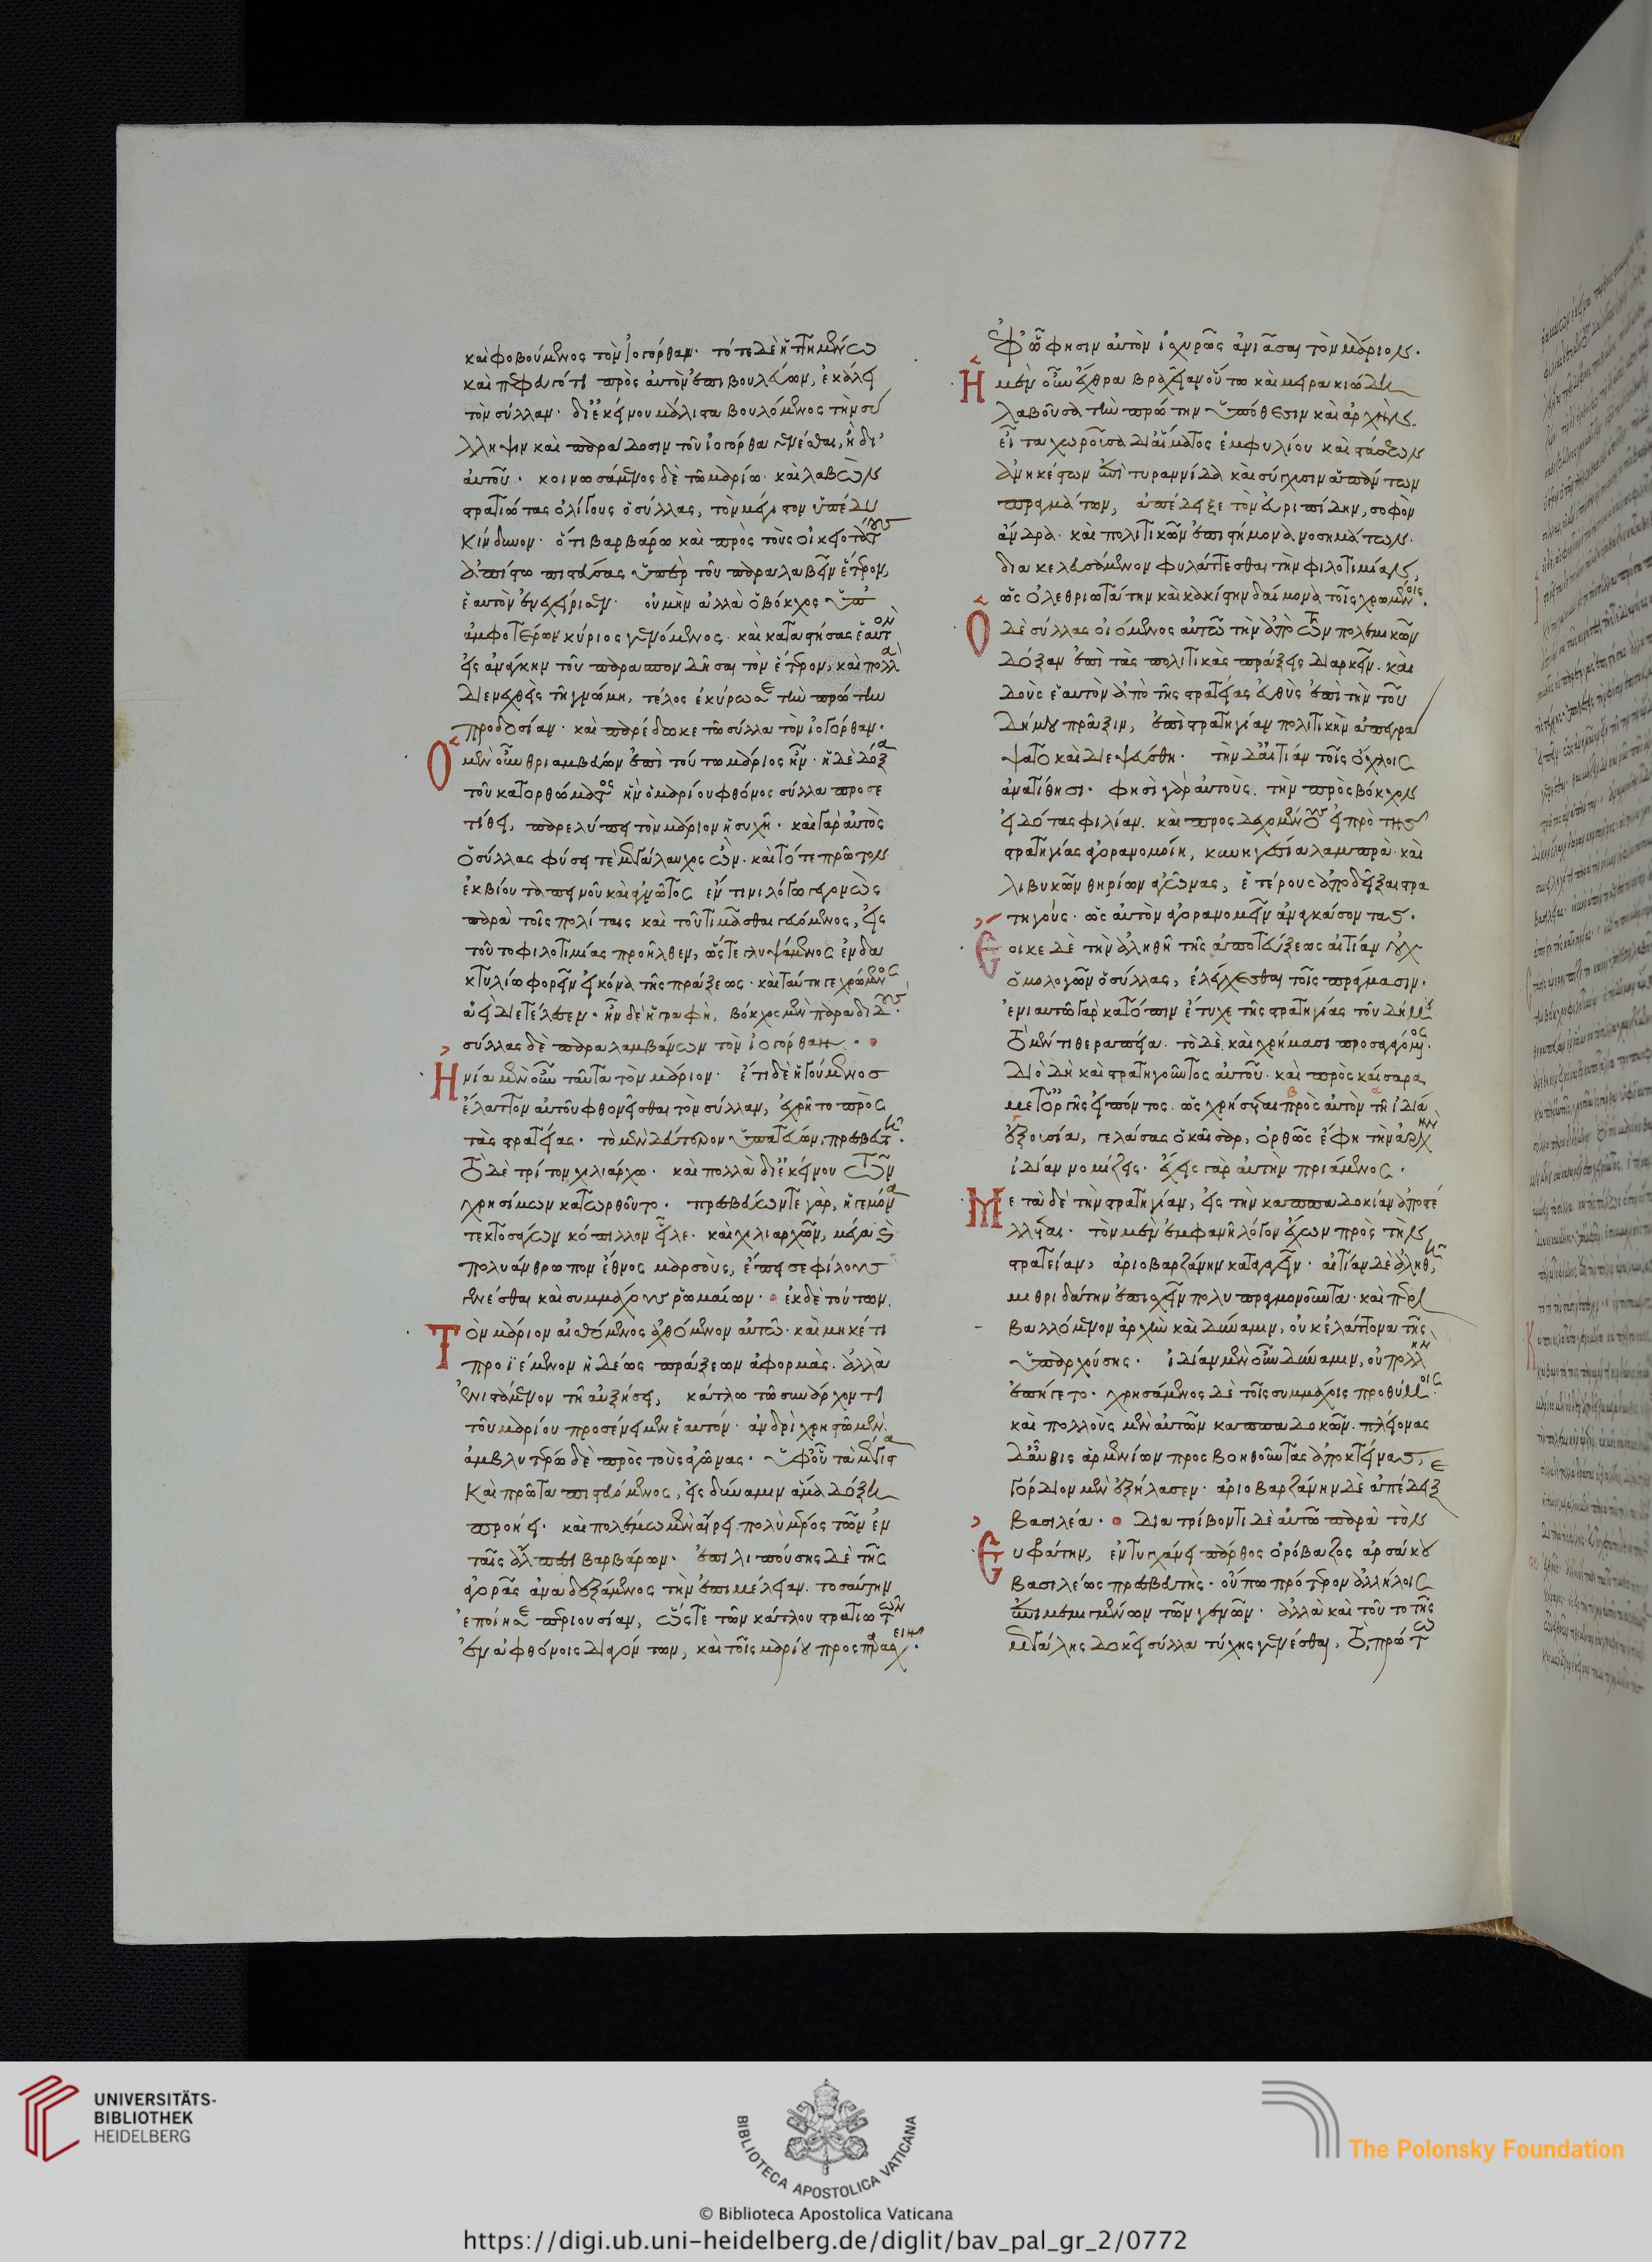 καὶ φοβούμενος τὸν ἰογόρθαν· τότε δὲ ἡττημένω
καὶ πεφευγότι πρὸς αὐτὸν ἐπιβουλεύων, ἐκάλει
τὸν σύλλαν· δι' ἐκείνου μάλιστα βουλόμενος τὴν σύ
λληψιν καὶ παράδοσιν τοῦ ἰογόρθα γενέσθαι, ἢ δι'
αὐτοῦ· κοινωσάμενος δὲ τῶ μαρίω· καὶ λαβὼν
στρατιώτας ὀλίγους ὁ σύλλας, τὸν μέγιστον ὑπέδυ
κίνδυνον· ὅτι βαρβάρω καὶ πρὸς τοὺς οἰκειοτάτους
ἀπίστω πιστεύσας ὑπὲρ τοῦ παραλαβεῖν ἕτερον,
ἑαυτὸν ἐνεχείρισεν· οὐ μὴν ἀλλὰ ὁ βόκχος ὑπ'
ἀμφοτέρων κύριος γενόμενος· καὶ καταστήσας ἑαυτὸν
εἰς ἀνάγκην τοῦ παρασπονδῆσαι τὸν ἕτερον, καὶ πολλὰ
διενεχθεὶς τῆ γνώμη, τέλος ἐκύρωσε τὴν πρώτην
προδοσίαν· καὶ παρέδωκε τῶ σύλλα τὸν ἰογόρθαν·
Ὁ μὲν οὖν θριαμβεύων ἐπὶ τούτω μάριος ἦν· ἡ δὲ δόξα
τοῦ κατορθώματος ἣν ὁ μαρίου φθόνος σύλλα προσε
τίθει, παρελύπει τὸν μάριον ἡσυχῆ· καὶ γὰρ αὐτὸς
ὁ σύλλας φύσει τε μεγάλαυχος ὢν· καὶ τότε πρῶτον
ἐκ βίου ταπεινοῦ καὶ ἀγνῶτος ἔν τινι λόγω γεγονὼς
παρὰ τοῖς πολίταις καὶ τοῦ τιμᾶσθαι γευόμενος, εἰς
τοῦτο φιλοτιμίας προῆλθεν, ὥστε γλυψάμενος ἐν δα
κτυλίω φορεῖν εἰκόνα τῆς πράξεως· καὶ ταύτη γε χρώμενος
ἀεὶ διετέλεσεν· ἦν δὲ ἡ γραφὴ, βόκχος μὲν παραδιδοὺς·
σύλλας δὲ παραλαμβάνων τὸν ἰογόρθαν·
Ἠνία μὲν οὖν ταῦτα τὸν μάριον· ἔτι δὲ ἡγούμενος
ἔλαττον αὐτοῦ φθονεῖσθαι τὸν σύλλαν, ἐχρῆτο πρὸς
τὰς στρατείας· τὸ μὲν δεύτερον ὑπατεύων, πρεσβευτῆ·
τὸ δὲ τρίτον χιλιάρχω· καὶ πολλὰ δι' ἐκείνου τῶν
χρησίμων κατωρθοῦτο· πρεσβεύων τε γὰρ, ἡγεμόνα
τεκτοσάγων κόπιλλον εἷλε· καὶ χιλιαρχῶν, μέγα καὶ
πολυάνθρωπον ἔθνος μαρσοὺς, ἔπεισε φίλους
γενέσθαι καὶ συμμάχους ῥωμαίων· ἐκ δὲ τούτων
Τὸν μάριον αἰσθόμενος ἀχθόμενον αὐτῶ· καὶ μηκέτι
προϊέμενον ἡδέως πράξεων ἀφορμὰς· ἀλλὰ
ἐνιστάμενον τῆ αὐξήσει, κάτλω τῶ συνάρχοντι
τοῦ μαρίου προσένειμεν ἑαυτόν· ἀνδρὶ χρηστῶ μὲν·
ἀμβλυτέρω δὲ πρὸς τοὺς ἀγῶνας· ὑφ' οὗ τὰ μέγιστα
καὶ πρῶτα πιστευόμενος, εἰς δύναμιν ἅμα δόξη
προήει· καὶ πολέμω μὲν αἱρεῖ πολὺ μέρος τῶν ἐν
ταῖς ἄλπεσι βαρβάρων· ἐπιλιπούσης δὲ τῆς
ἀγορᾶς ἀναδεξάμενος τὴν ἐπιμέλειαν· τοσαύτην
ἐποίησε περιουσίαν, ὥστε τῶν κάτλου στρατιωτῶν
ἐν ἀφθόνοις διαγόντων, καὶ τοῖς μαρίου προσπαρασχεῖν·
ἐφ' ὧ φησιν αὐτὸν ἰσχυρῶς ἀνιᾶσαι τὸν μάριον·
Ἡ μὲν οὖν ἔχθρα βραχεῖαν οὕτω καὶ μειρακιώδη
λαβοῦσα τὴν πρώτην ὑπόθεσιν καὶ ἀρχὴν·
εἶτα χωροῦσα δι' αἵματος ἐμφυλίου καὶ στάσεων
ἀνηκέστων ἐπὶ τυραννίδα καὶ σύγχυσιν ἁπάντων
πραγμάτων, ἀπέδειξε τὸν εὐριπίδην, σοφὸν
ἄνδρα· καὶ πολιτικῶν ἐπιστήμονα νοσημάτων·
διακελευσάμενον φυλάττεσθαι τὴν φιλοτιμίαν,
ὡς ὀλεθριωτάτην καὶ κακίστην δαίμονα τοῖς χρωμένοις·
Ὁ δὲ σύλλας οἰόμενος αὐτῶ τὴν ἀπὸ τῶν πολεμικῶν
δόξαν ἐπὶ τὰς πολιτικὰς πράξεις διαρκεῖν· καὶ
δοὺς ἑαυτὸν ἀπὸ τῆς στρατείας εὐθὺς ἐπὶ τὴν τοῦ
δήμου πρᾶξιν, ἐπὶ στρατηγίαν πολιτικὴν ἀπεγρα
ψατο καὶ διεψεύσθη· τὴν δ' αἰτίαν τοῖς ὄχλοις
ἀνατίθησι· φησὶ γὰρ αὐτοὺς τὴν πρὸς βόκχον
εἰδότας φιλίαν· καὶ προσδεχομένους εἰ πρὸ τῆς
στρατηγίας ἀγορανομοίη, κυνηγέσια λαμπρὰ καὶ
λιβυκῶν θηρίων ἀγῶνας, ἑτέρους ἀποδεῖξαι στρα
τηγούς· ὡς αὐτὸν ἀγορανομεῖν ἀναγκάσοντας·
Ἔοικε δὲ τὴν ἀληθῆ τῆς ἀποτεύξεως αἰτίαν οὐχ
ὁμολογῶν ὁ σύλλας, ἐλέγχεσθαι τοῖς πράγμασιν·
ἐνιαυτῶ γὰρ κατόπιν ἔτυχε τῆς στρατηγίας τοῦ δήμου
τὸ μέν τι θεραπεία· τὸ δὲ καὶ χρήμασι προσαγόμενος·
διὸ δὴ καὶ στρατηγοῦντος αὐτοῦ· καὶ πρὸς καίσαρα
μετ' ὀργῆς εἰπόντος· ὡς χρήσεται πρὸς αὐτὸν τῆ ἰδία
ἐξουσία, γελάσας ὁ καῖσαρ, ὀρθῶς ἔφη τὴν ἀρχὴν
ἰδίαν νομίζεις· ἔχεις γὰρ αὐτὴν πριάμενος·
Μετὰ δὲ τὴν στρατηγίαν, εἰς τὴν καππαδοκίαν ἀποστέ
λλεται· τὸν μὲν ἐμφανῆ λόγον ἔχων πρὸς τὴν
στρατείαν, ἀριοβαρζάνην καταγαγεῖν· αἰτίαν δὲ ἀληθῆ,
μιθριδάτην ἐπισχεῖν πολυπραγμονοῦντα· καὶ περι
βαλλόμενον ἀρχὴν καὶ δύναμιν, οὐκ ἐλάττονα τῆς
ὑπαρχούσης· ἰδίαν μὲν οὖν δύναμιν, οὐ πολλὴν
ἐπήγετο· χρησάμενος δὲ τοῖς συμμάχοις προθύμοις·
καὶ πολλοὺς μὲν αὐτῶν καππαδοκῶν· πλείονας
δ' αὖθις ἀρμενίων προσβοηθοῦντας ἀποκτείνας,
γόρδιον μὲν ἐξήλασεν· ἀριοβαρζάνην δὲ ἀπέδειξε
βασιλέα· διατρίβοντι δὲ αὐτῶ παρὰ τὸν
Εὐφράτην, ἐντυγχάνει πάρθος ὀρόβαζος ἀρσάκου
βασιλέως πρεσβευτὴς· οὔπω πρότερον ἀλλήλοις
ἐπιμεμιγμένων τῶν γενῶν· ἀλλὰ καὶ τοῦτο τῆς
μεγάλης δοκεῖ σύλλα τύχης γενέσθαι, τὸ, πρώτω
UNIVERSITÄTS-
BIBLIOTHEK
HEIDELBERG
BIBLIOTECA APOSTOLICA VATICANA
The Polonsky Foundation
© Biblioteca Apostolica Vaticana
https://digi.ub.uni-heidelberg.de/diglit/bav_pal_gr_2/0772